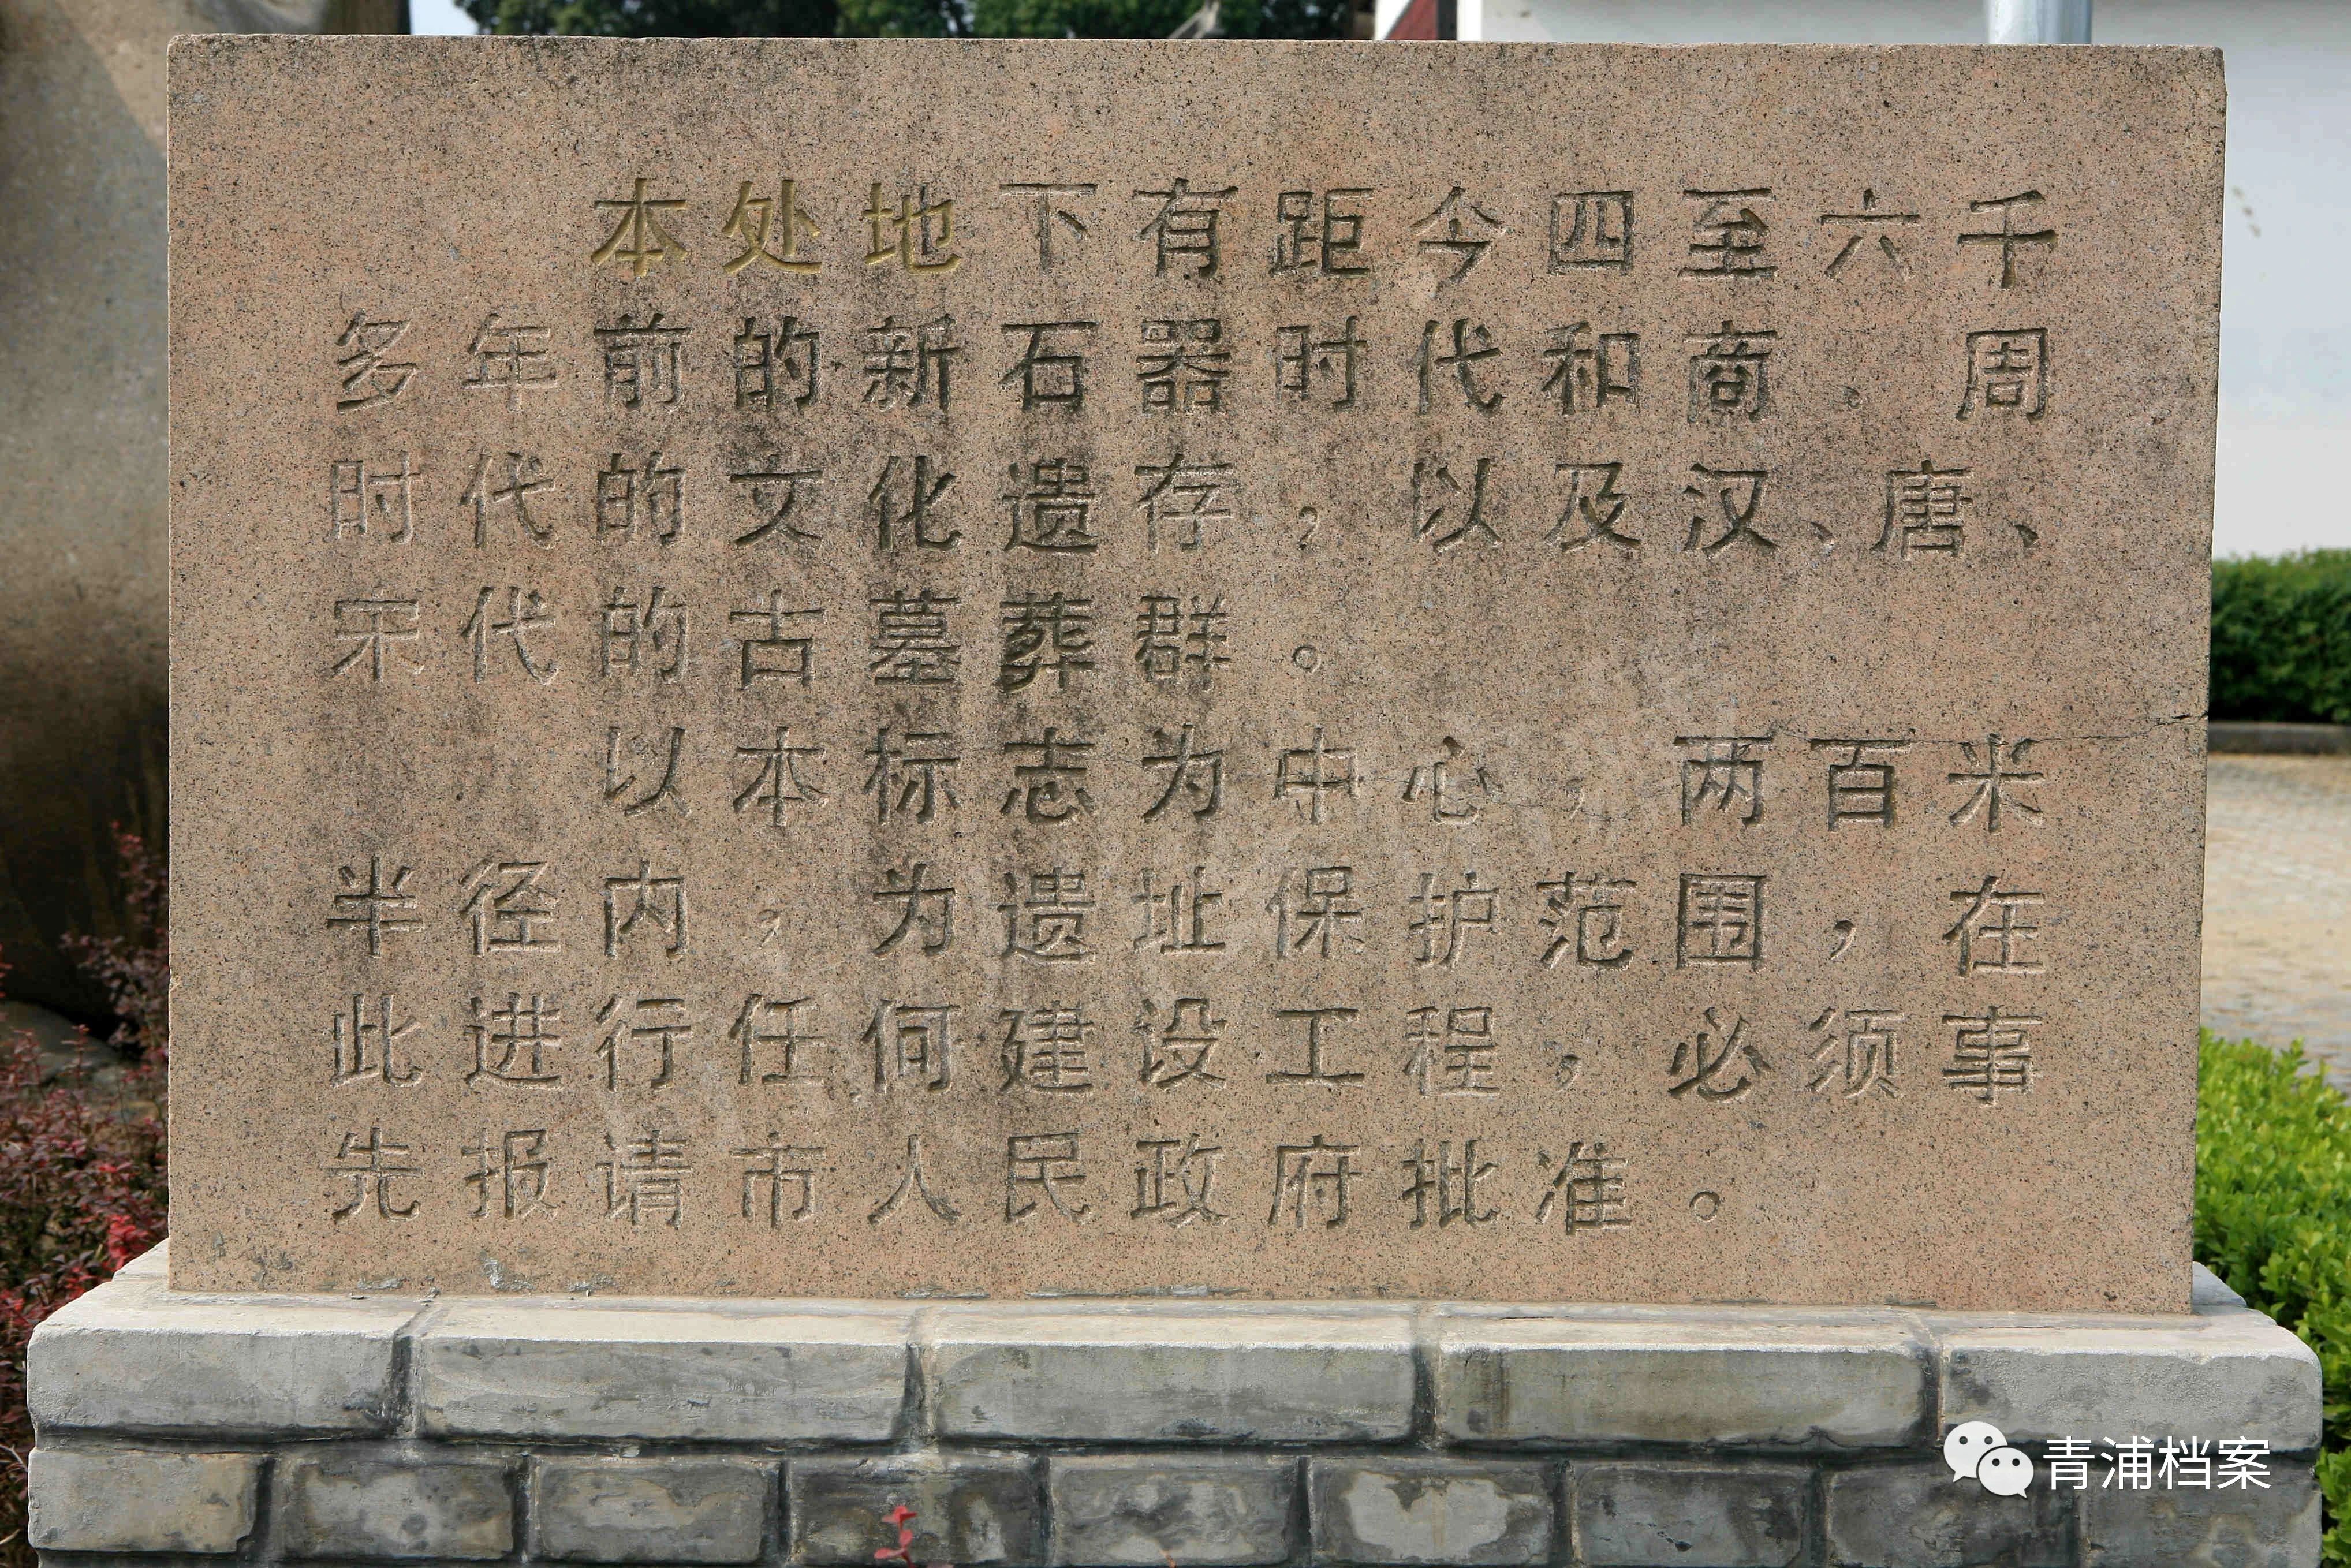 本处地下有距今四至六千
多年前的新石器时代和商、周
时代的文化遗存，以及汉、唐、
宋代的古墓葬群。
以本标志为中心，两百米
半径内，为遗址保护范围，在
此进行任何建设工程，必须事
先报请市人民政府批准。
青浦档案